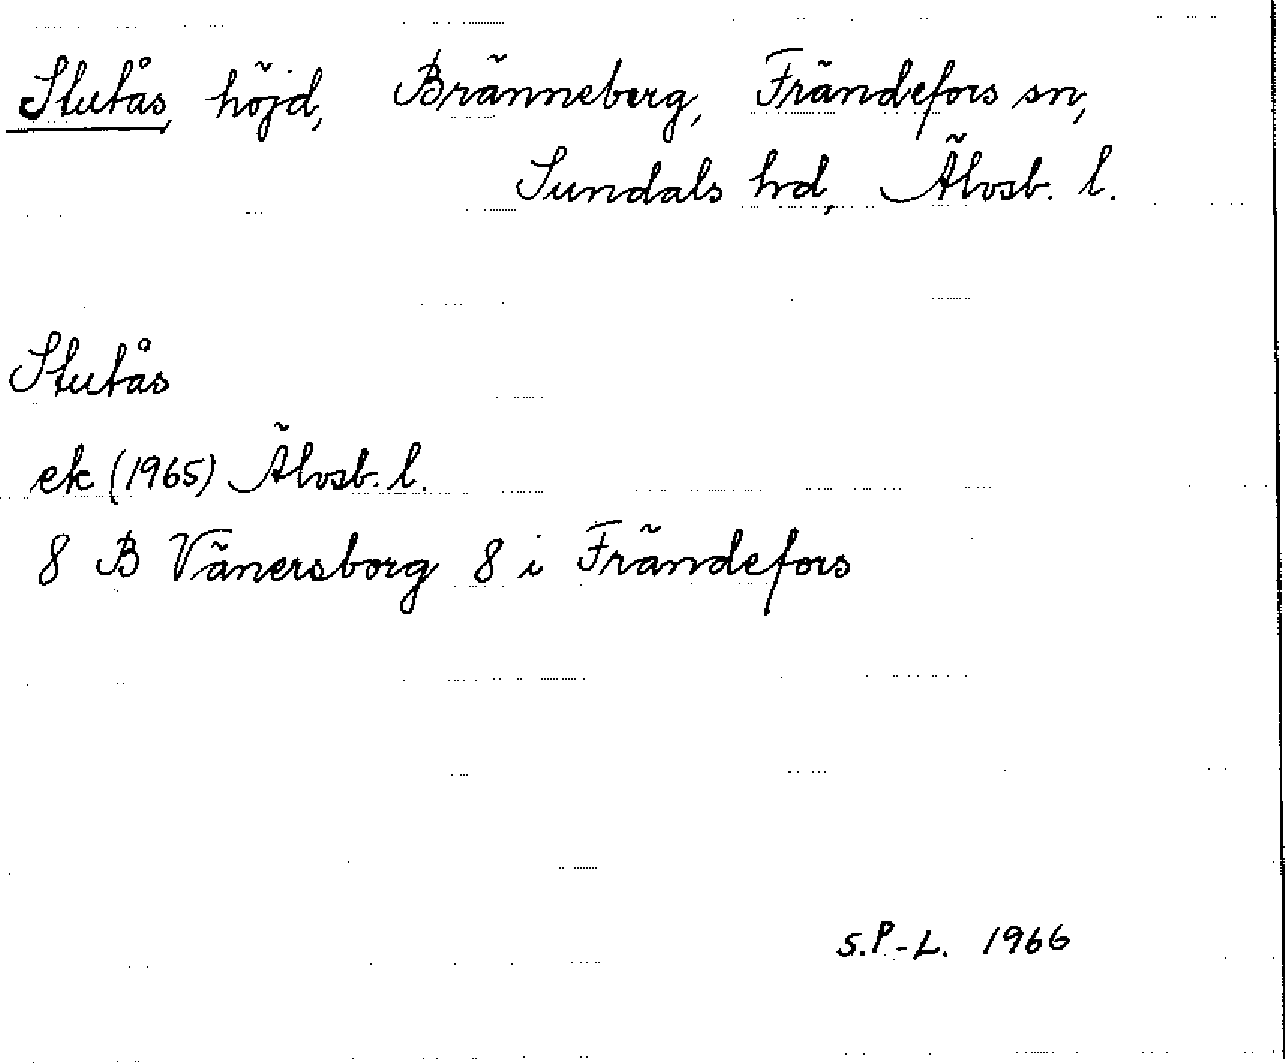 Stutås, höjd, Bränneberg, Frändefors sn,
Sundals hrd, Älvsb. l.
Stutås
ek (1965) Älvsb. l.
8 B Vänersborg 8 i Frändefors
S.P.-L. 1966